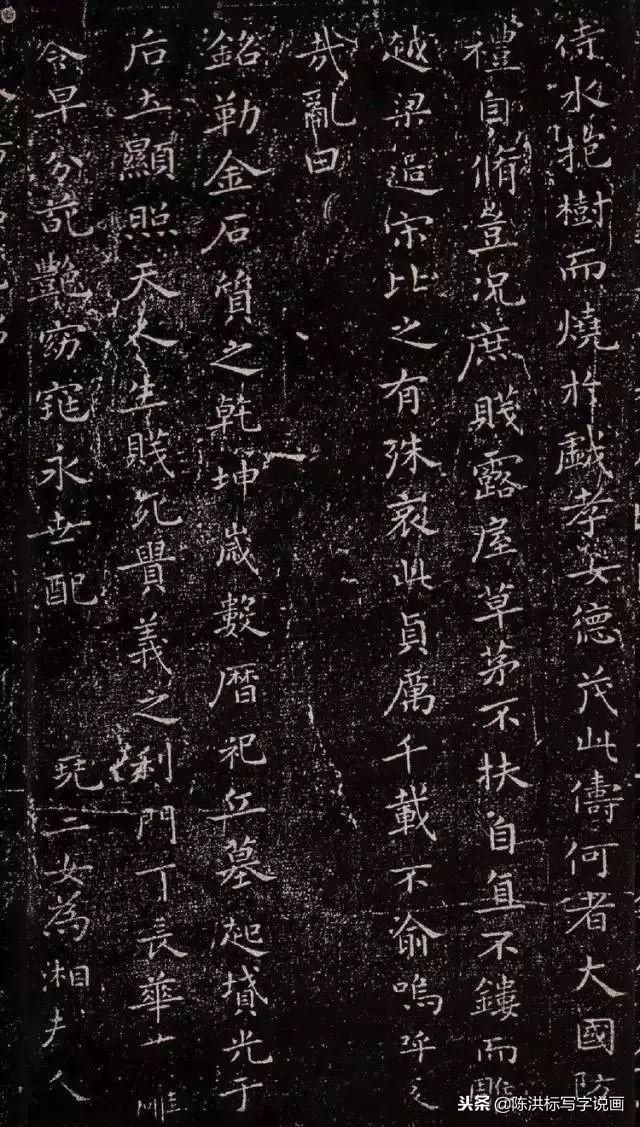 待水抱樹而燒於戯孝女德茂此儔何者大國防
禮自脩豈况庶賤露屋草茅不扶自直不鏤而雕
越梁過宋比之有殊哀此貞厲千載不俞嗚呼哀
哉亂曰
銘勒金石質之乾坤歲數曆祀丘墓起墳光于
后土顯照天人生賤死貴義之利門丁長華雕
令早分葩艷窈窕永世配堯二女為湘夫人
头条@陈洪标写字说画